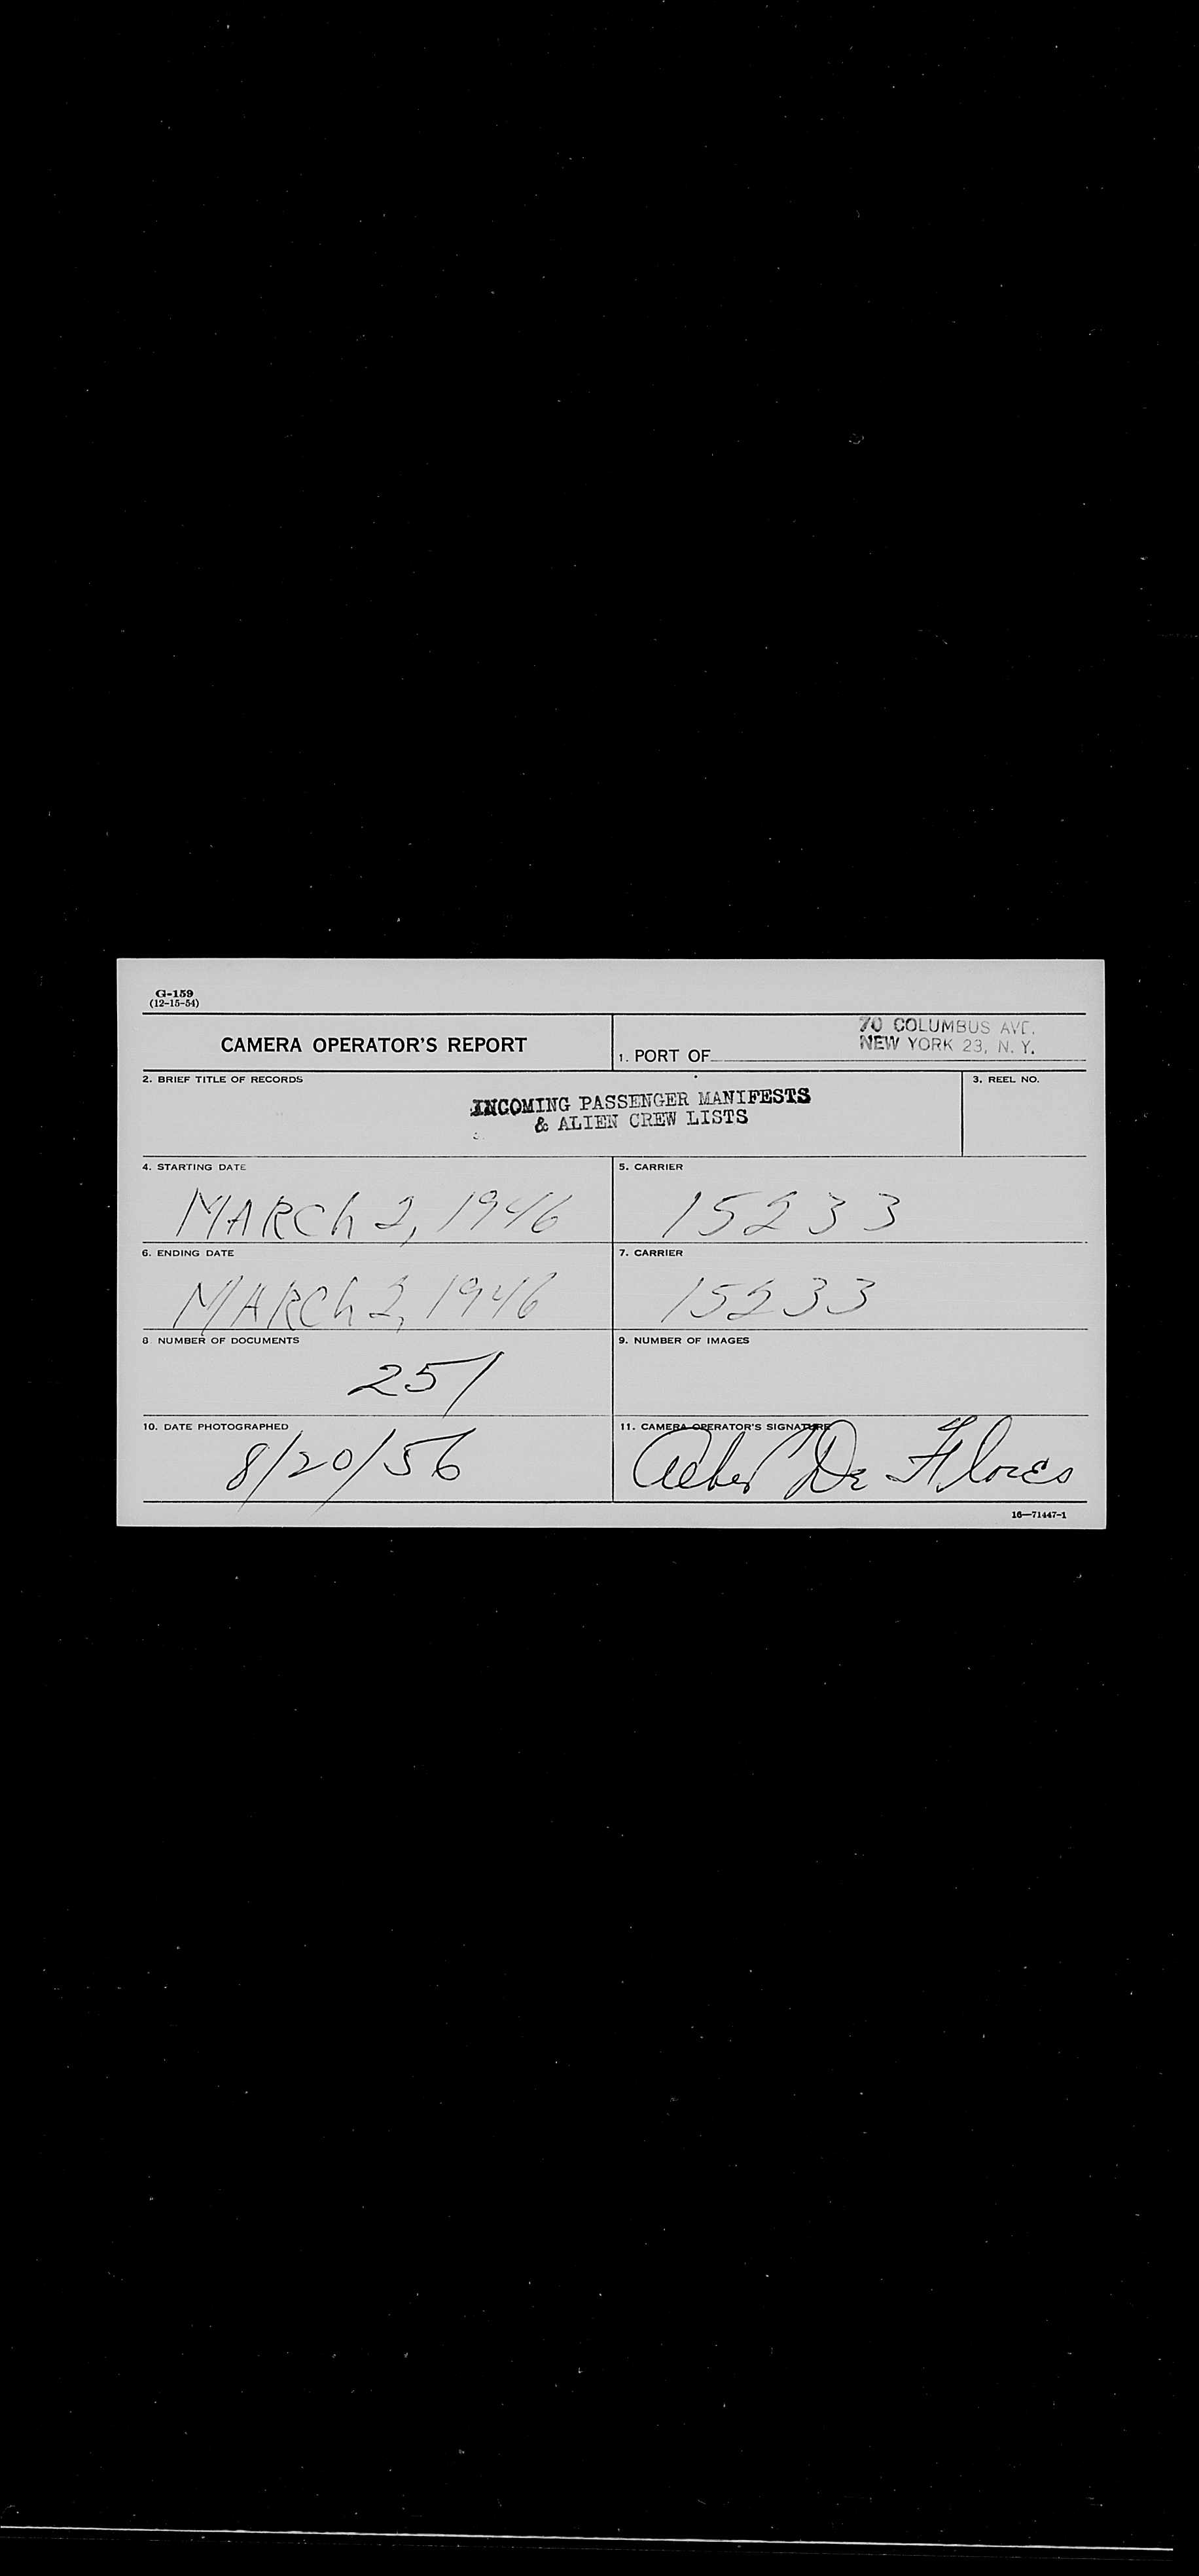 G-159
(12-15-54)
CAMERA OPERATOR'S REPORT
1. PORT OF
70 COLUMBUS AVE.
NEW YORK 23, N. Y.
2. BRIEF TITLE OF RECORDS
INCOMING PASSENGER MANIFESTS
& ALIEN CREW LISTS
3. REEL NO.
4. STARTING DATE
MARCh 2, 1946
5. CARRIER
15233
6. ENDING DATE
MARCh 2, 1946
7. CARRIER
15233
8 NUMBER OF DOCUMENTS
251
9. NUMBER OF IMAGES
10. DATE PHOTOGRAPHED
8/20/56
11. CAMERA OPERATOR'S SIGNATURE
De Flores
16—71447-1